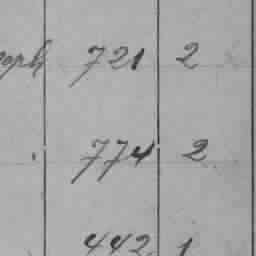 721 2
774 2
442 1